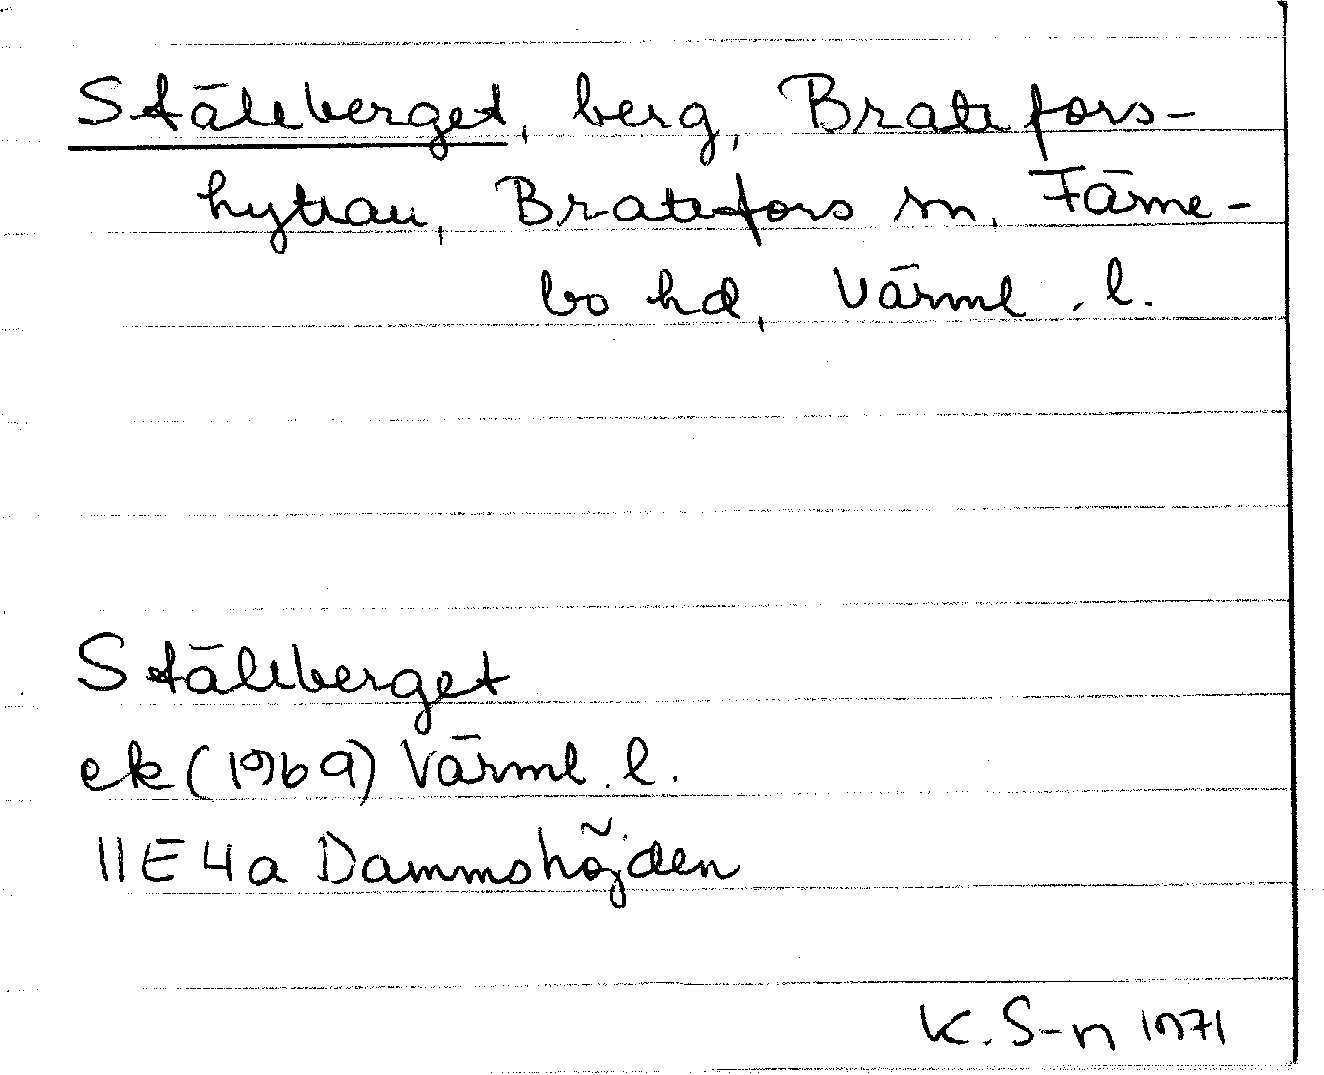 Ställberget, berg, Brattfors-
hyttan, Brattfors sn, Färne-
bo hd, Värml. l.
Ställberget
ek (1969) Värml. l.
11E 4a Dammshöjden
K. S-n 1971